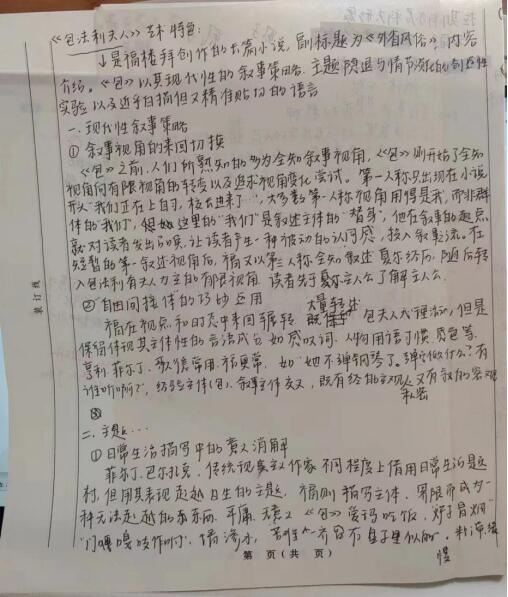 《包法利夫人》艺术特色:
↓是福楼拜创作的长篇小说,副标题为《外省风俗》,内容
介绍。《包》以其现代性的叙事策略、主题隐退与情节淡化的创造性
实验以及近乎白描但又精准贴切的语言
一.现代性叙事策略
① 叙事视角的来回切换
《包》之前,人们所熟知的多为全知叙事视角,《包》则开始了全知
视角向有限视角的转变以及追求视角变化尝试。第一人称只出现在小说
开头"我们正在上自习,校长进来了…",大多数第一人称视角用得是我,而非群
体的"我们",这里的"我们"是叙述主体的"替身",他在叙事的起点
就对读者发出召唤,让读者产生一种被动的认同感,投入叙事流。在
短暂的第一叙述视角后,福又以第三人称全知叙述夏尔经历,随后转
入包法利夫人为主的有限视角 读者先于夏尔主人公了解主人公.
② 自由间接体的巧妙运用
大量转述
福在视点和时态中来回辗转 既保 包夫人 但是
保留体现其主体性的言法成分 如感叹词、人物用语习惯、感包等
亨利·菲尔丁、歌德常用.福更常. 如"她不弹钢琴了。弹它做什么?有
谁听啊?", 经验主体(包)、叙事主体交叉,既有经的主观,又有叙的客观
③
二.主题…
① 日常生活描写中的意义消解
菲尔丁、巴尔扎克,传统现实主义作家不同程度上借用日常生活是题
材,但用其表现超越日生的主题,福则描写主体、界限而成为一
种无法超越的东西,平庸,无意义 《包》爱玛吃饭,炉子冒烟
"门嘎嘎吱作响,墙渗水,
第 页(共 页)
慢
装订线